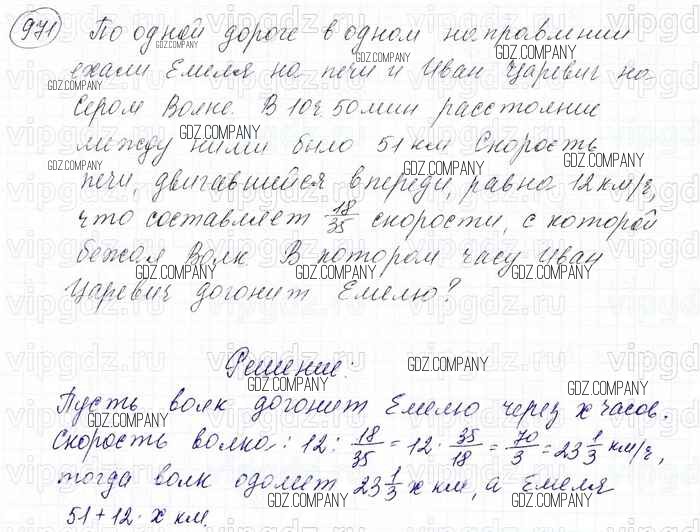 971 По одной дороге в одном направлении
ехали Емеля на печи и Иван Царевич на
Сером Волке. В 10ч. 50мин расстояние
между ними было 51 км Скорость
печи, двигавшейся впереди, равна 12 км/ч,
что составляет 18/35 скорости, с которой
бежал Волк В котором часу Иван
Царевич догонит Емелю?
Решение:
Пусть волк догонит Емелю через x часов.
Скорость волка: 12 : 18/35 = 12 · 35/18 = 70/3 = 23 1/3 км/ч,
тогда волк одолеет 23 1/3 x км, а Емеля
51 + 12 · x км.
GDZ.COMPANY
vipgdz.ru